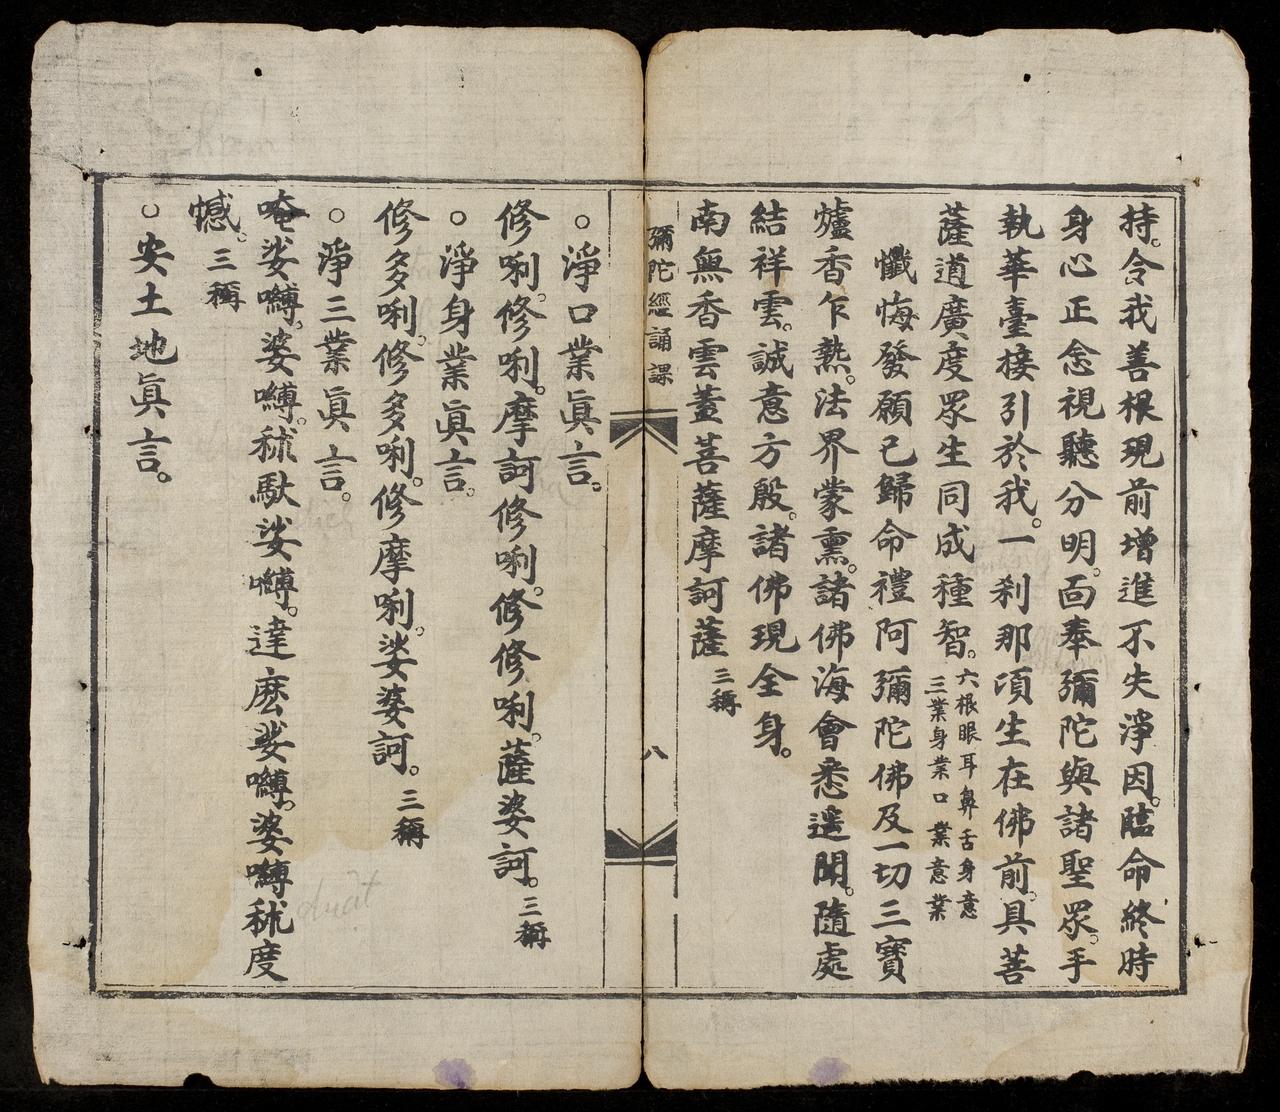 持。令我善根現前增進不失淨因。臨命終時
身心正念視聽分明。面奉彌陀與諸聖眾。手
執華臺接引於我。一剎那項生在佛前。具菩
薩道廣度眾生同成種智。六根眼耳鼻舌身意
三業身業口業意業
懺悔發願已歸命禮阿彌陀佛及一切三寶
爐香乍熱。法界蒙熏。諸佛海會悉遥聞。隨處
結祥雲。誠意方殷。諸佛現全身。
南無香雲蓋菩薩摩訶薩三稱
彌陀經誦課
八
○淨口業眞言。
修唎。修唎。摩訶修唎。修修唎。薩婆訶。三稱
○淨身業眞言。
修多唎。修多唎。修摩唎。娑婆訶。三稱
○淨三業眞言。
唵娑嚩。婆嚩。秫馱娑嚩。達麽娑嚩。婆嚩秫度
憾。三稱
○安土地眞言。
duat